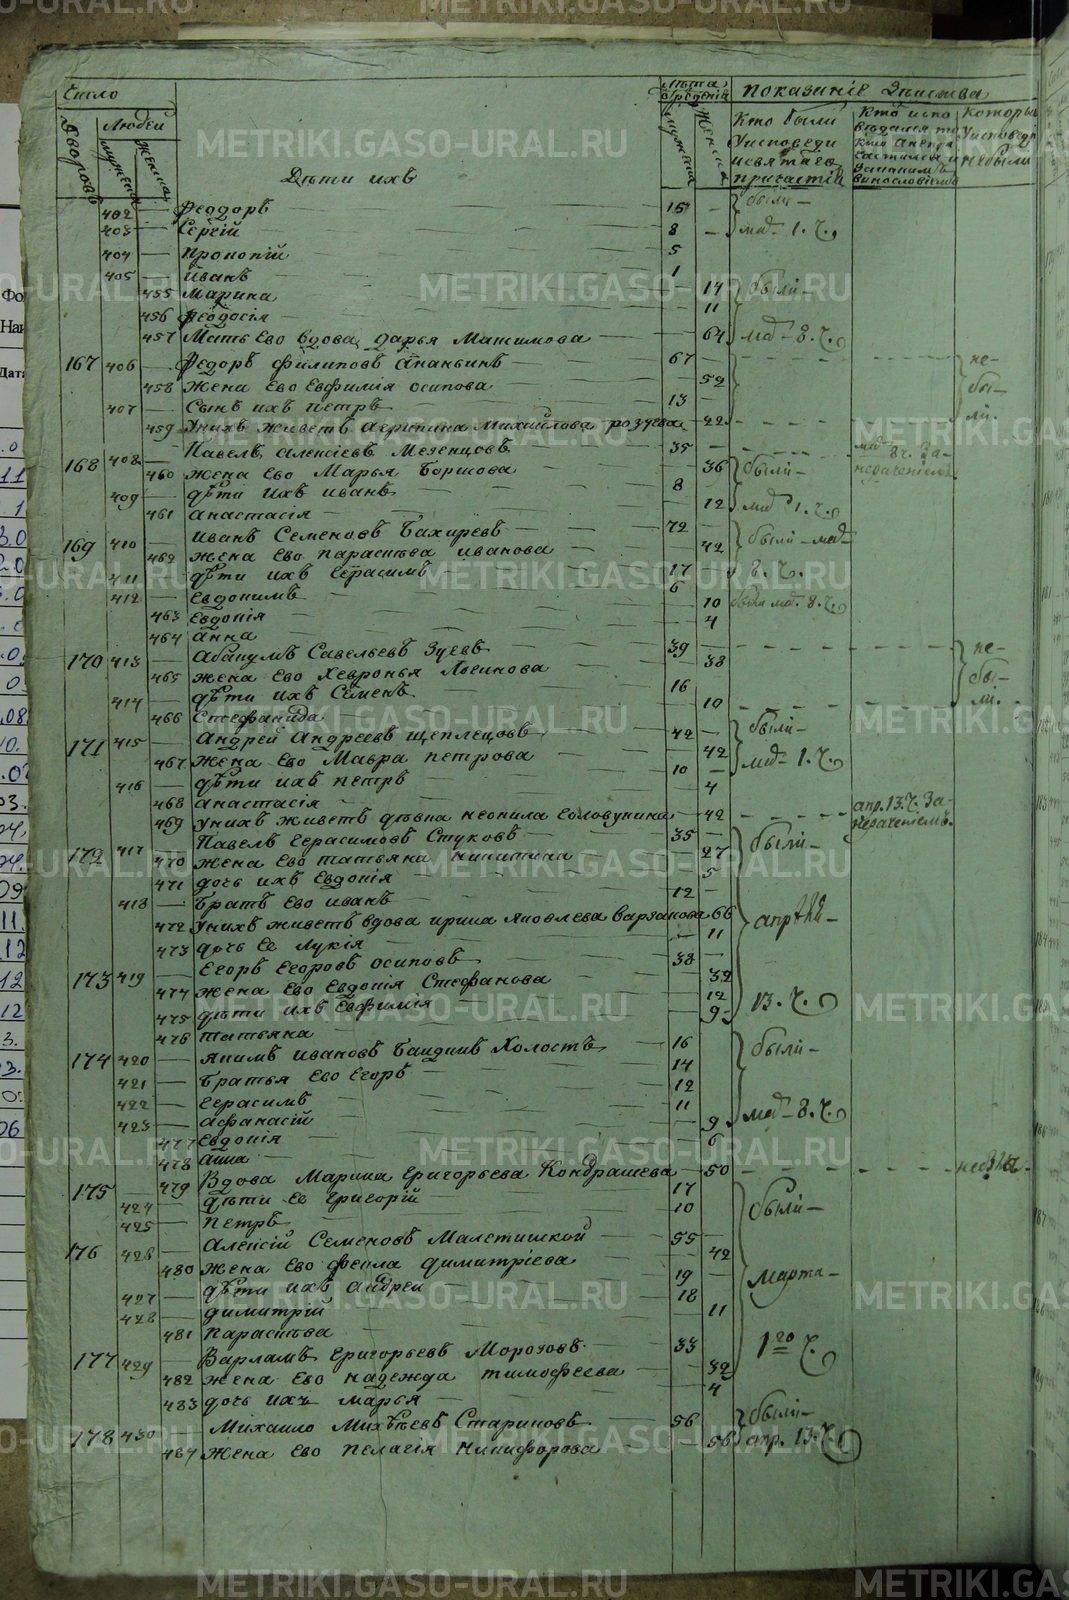 Число
Лѣта рожденія
Показаніе Дѣиства
Дворовъ
Людей
мужеска
женска
Дѣти ихъ
Кто были Уисповеди исвятаго причастія
Кто испо ведался то кмо анепри частился и закакимъ винословіемъ
которыя Уисповеди небыли
402 — Феодоръ 15 — были —
403 — Сергій 8 — мар. 1. ч.
404 — Прокопій 5
405 — Иванъ 1
455 Марина — 14 были —
456 Феодосія 11
457 Мать Ево вдова дарья Максимова — 64 мар. 8. ч.
167 406 — Федоръ Филиповъ Ананьинъ 67 — не-
458 Жена Ево Евфимія осипова — 52 бы-
407 — Сынъ ихъ петръ 13 — ли.
459 Унихъ живетъ агрипина Михайлова розуева — 22
168 408 — Павелъ алексіевъ Мезенцовъ 35 — мар. 8 ч. за-
460 жена Ево Марья Борисова — 36 были — нераченіемъ
409 — дѣти ихъ иванъ 8
461 анастасія — 12 мар. 1. ч.
169 410 — иванъ Семеновъ Бахиревъ 72 — были — мар.
462 жена Ево параскова иванова — 42
411 — дѣти ихъ Герасимъ 17 — 8. ч.
412 — Евдокимъ 6
463 Евдокія — 10 были мар. 8. ч.
464 анна — 4
170 413 — Абакумъ Савельевъ Зуевъ 39 — не-
465 жена Ево Хевронья — 38 бы-
414 — дѣти ихъ Семенъ 16 ли.
466 Стефанида — 10
171 415 — Андрей Андреевъ Щеплецовъ 42 — были —
467 Жена Ево Мавра петрова — 42 мар. 1. ч.
416 — дѣти ихъ петръ 10 —
468 анастасія — 4
469 унихъ живетъ дѣвка неонила Головунина — 42 апр. 13. ч. за-нераченіемъ.
172 417 — Павелъ Герасимовъ Стуковъ 35 — были —
470 жена Ево татьяна никитина — 27
471 дочь ихъ Евдокія — 5
418 — Братъ Ево иванъ 12 —
472 унихъ живетъ вдова ирина Яковлева Варзакова 66 апрѣля —
473 дочь Ее лукія — 11
173 419 — Егоръ Егоровъ осиповъ 38 —
474 жена Ево Евдокія Стефанова — 32
475 дѣти ихъ Евфимія — 12 13. ч.
476 татьяна — 9
174 420 — якимъ ивановъ Баидинъ Холостъ 16 были —
421 — Братья Ево Егоръ 14
422 — Герасимъ 12
423 — афанасій 11 мар. 8. ч.
477 Евдокія — 9
478 анна — 6
175 479 Вдова Марина григорьева Кондрашева — 50
424 — дѣти Ее григорій 17 были —
425 — петръ 10
176 426 — Алексій Семеновъ Малетишкой 55 —
480 жена Ево фекла димитріева — 42
427 — дѣти ихъ андрей 19 — марта —
428 — димитрій 18
481 параскова — 11
177 429 — Варламъ григорьевъ Морозовъ 33 1го ч.
482 жена Ево надежда тимофеева — 32
483 дочь ихъ марья — 4
178 430 — Михаило Михѣевъ Стариковъ 56 были —
484 жена Ево пелагія никифорова — 56 апр. 13. ч.
METRIKI.GASO-URAL.RU